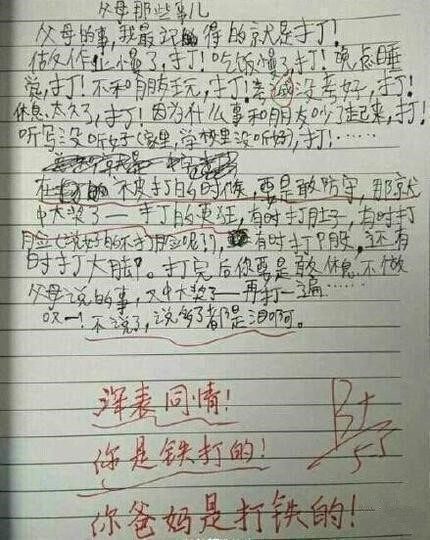 父母那些事儿
父母的事,我最记得的就是打了!
做作业慢了,打!吃饭慢了,打!晚点睡
觉,打!不和朋友玩,打!考试没考好,打!
休息太久了,打!因为什么事和朋友吵了起来,打!
听写没听好(家里,学校里没听好),打!……
在被打的时候,要是敢防守,那就
中大奖了——打的更狂,有时打肚子,有时打
脸(说好的不打脸呢?!),有时打屁股,还有
时打大腿。打完后你要是敢休息不做
父母说的事,又中大奖了——再打一遍……
哎——!不说了,说多了都是泪啊。
深表同情!
你是铁打的!
你爸妈是打铁的!
B+
5.5